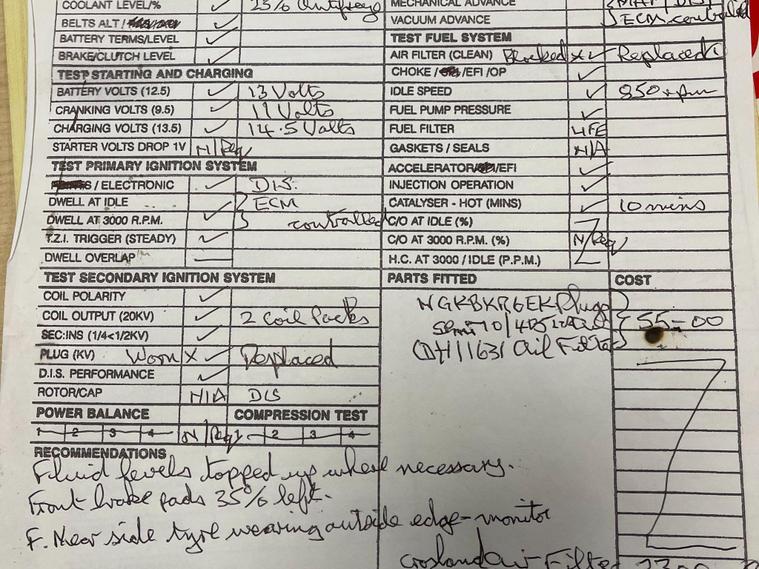 COOLANT LEVEL/% 25% Antifreeze
BELTS ALT /
BATTERY TERMS/LEVEL ✓
BRAKE/CLUTCH LEVEL ✓
TEST STARTING AND CHARGING
BATTERY VOLTS (12.5) ✓ 13 Volts
CRANKING VOLTS (9.5) ✓ 11 Volts
CHARGING VOLTS (13.5) ✓ 14.5 Volts
STARTER VOLTS DROP 1V N/Req
TEST PRIMARY IGNITION SYSTEM
/ ELECTRONIC ✓ DIS.
DWELL AT IDLE ECM
DWELL AT 3000 R.P.M. ✓ controlled
T.Z.I. TRIGGER (STEADY) ✓
DWELL OVERLAP —
TEST SECONDARY IGNITION SYSTEM
COIL POLARITY ✓
COIL OUTPUT (20KV) ✓ 2 Coil Packs
SEC:INS (1/4<1/2KV) ✓
PLUG (KV) Worn X ✓ Replaced
D.I.S. PERFORMANCE ✓
ROTOR/CAP N/A DIS
POWER BALANCE COMPRESSION TEST
1 2 3 4 N/Req 2 3 4
RECOMMENDATIONS
Fluid levels topped up where necessary.
Front brake pads 35% left.
F. Near side tyre wearing outside edge - monitor
MECHANICAL ADVANCE
VACUUM ADVANCE ECM controlled
TEST FUEL SYSTEM
AIR FILTER (CLEAN) Blocked X ✓ Replaced
CHOKE / /EFI /OP ✓
IDLE SPEED ✓ 850 rpm
FUEL PUMP PRESSURE ✓
FUEL FILTER LIFE
GASKETS / SEALS N/A
ACCELERATOR/ /EFI ✓
INJECTION OPERATION ✓
CATALYSER - HOT (MINS) ✓ 10 mins
C/O AT IDLE (%)
C/O AT 3000 R.P.M. (%) N/Req
H.C. AT 3000 / IDLE (P.P.M.)
PARTS FITTED COST
Plugs
Semi 10/40 55-00
Oil Filter
Crosland Air Filter